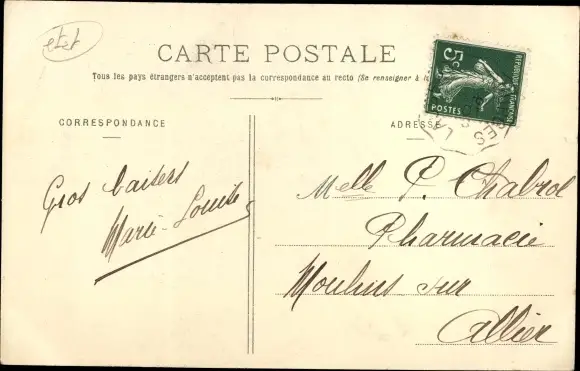 etet
CARTE POSTALE
Tous les pays étrangers n'acceptent pas la correspondance au recto (Se renseigner à la
5c
REPUBLIQUE FRANÇAISE
POSTES
CORRESPONDANCE
ADRESSE
Gros baisers
Marie-Louise
Melle P. Chabrol
Pharmacie
Moulins sur
Allier